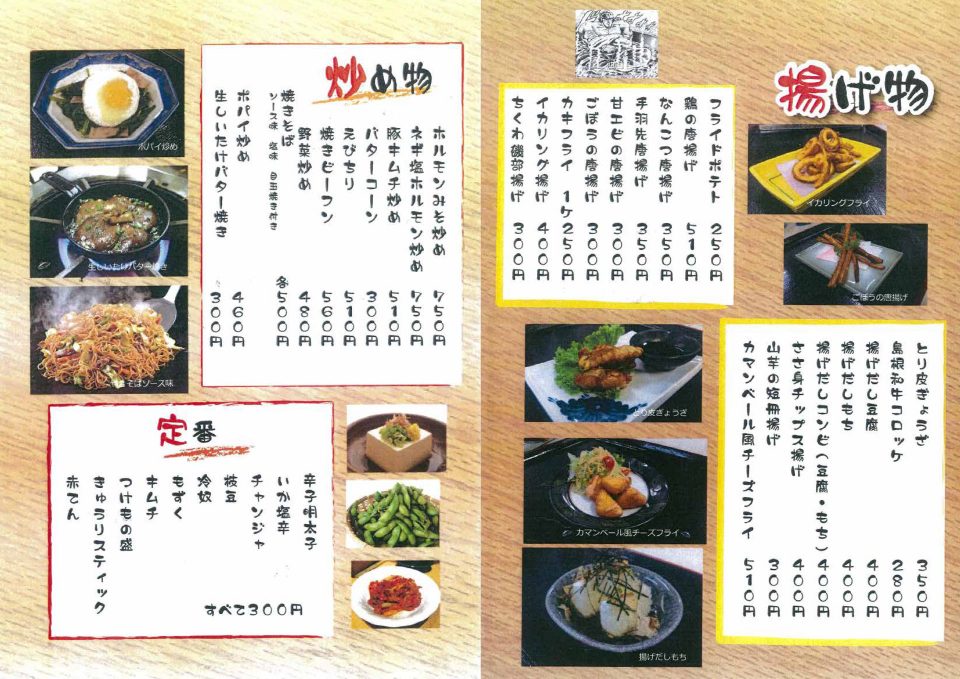 揚げ物
フライドポテト 250円
鶏の唐揚げ 510円
なんこつ唐揚げ 350円
手羽先唐揚げ 350円
甘エビの唐揚げ 300円
ごぼうの唐揚げ 300円
カキフライ 1ケ 250円
イカリング揚げ 400円
ちくわ磯部揚げ 300円
イカリングフライ
ごぼうの唐揚げ
とり皮ぎょうざ 350円
島根和牛コロッケ 280円
揚げだし豆腐 400円
揚げだしもち 400円
揚げだしコンビ(豆腐・もち) 400円
ささ身チップス揚げ 400円
山芋の短冊揚げ 300円
カマンベール風チーズフライ 510円
とり皮ぎょうざ
カマンベール風チーズフライ
揚げだしもち
炒め物
ホルモンみそ炒め 750円
ネギ塩ホルモン炒め 750円
豚キムチ炒め 510円
バターコーン 300円
えびちり 510円
焼きビーフン 560円
野菜炒め 480円
焼きそば 各500円
ソース味 塩味 目玉焼き付き
ポパイ炒め 460円
生しいたけバター焼き 300円
ポパイ炒め
生しいたけバター焼き
焼きそばソース味
定番
辛子明太子
いか塩辛
チャンジャ
枝豆
冷奴
もずく
キムチ
つけもの盛
きゅうりスティック
赤てん
すべて300円